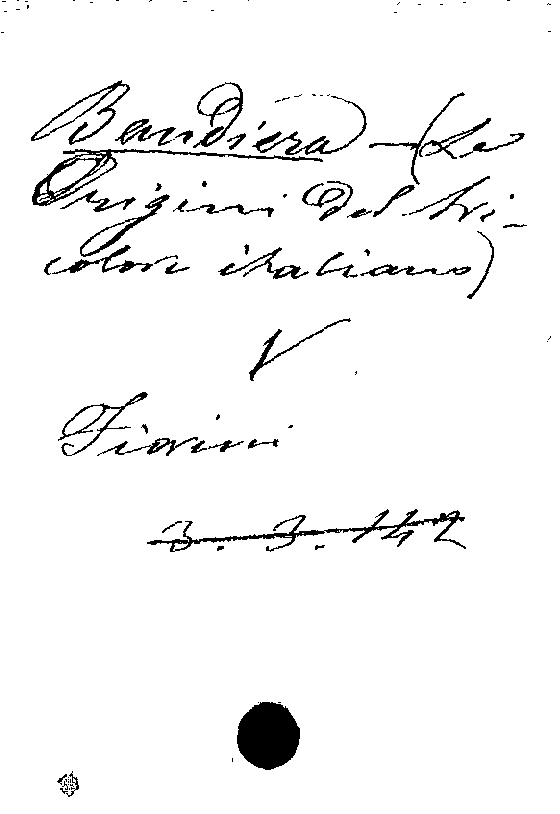 Bandiera - (Le
Origini del tri-
colore italiano)
V
Fiorini
3. 3. 142